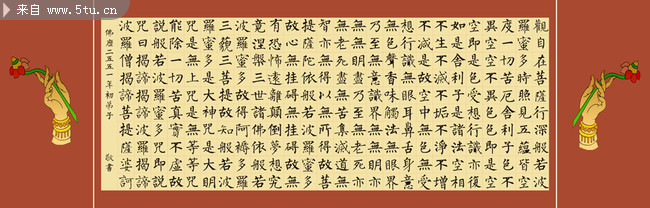 来自 www.5tu.cn
觀自在菩薩行深般若波
羅蜜多時照見五蘊皆空
度一切苦厄舍利子色不
異空空不異色色即是空
空即是色受想行識亦復
如是舍利子是諸法空相
不生不滅不垢不淨不增
不減是故空中無色無受
想行識無眼耳鼻舌身意
無色聲香味觸法無眼界
乃至無意識界無無明亦
無無明盡乃至無老死亦
無老死盡無苦集滅道無
智亦無得以無所得故菩
提薩陀依般若波羅蜜多
故心無挂碍無挂碍故無
有恐怖遠離顛倒夢想究
竟涅槃三世諸佛依般若
波羅蜜多故得阿耨多羅
三藐三菩提故知般若波
羅蜜多是大神咒是大明
咒是無上咒是無等等咒
能除一切苦真實不虛故
說般若波羅蜜多咒即說
咒曰揭諦揭諦波羅揭諦
波羅僧揭諦菩提薩婆訶
佛歷二五五一年初弟子 敬書